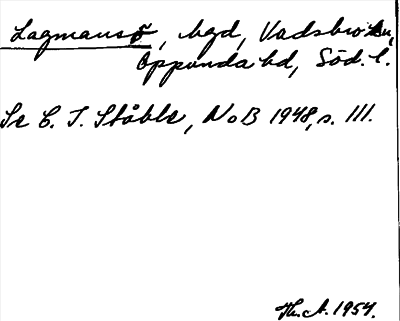 Lagmansö, bgd, Vadsbro sn,
Oppunda hd, Söd. l.
Se C. I. Ståhle, NoB 1948, s. 111.
Th. A. 1954.